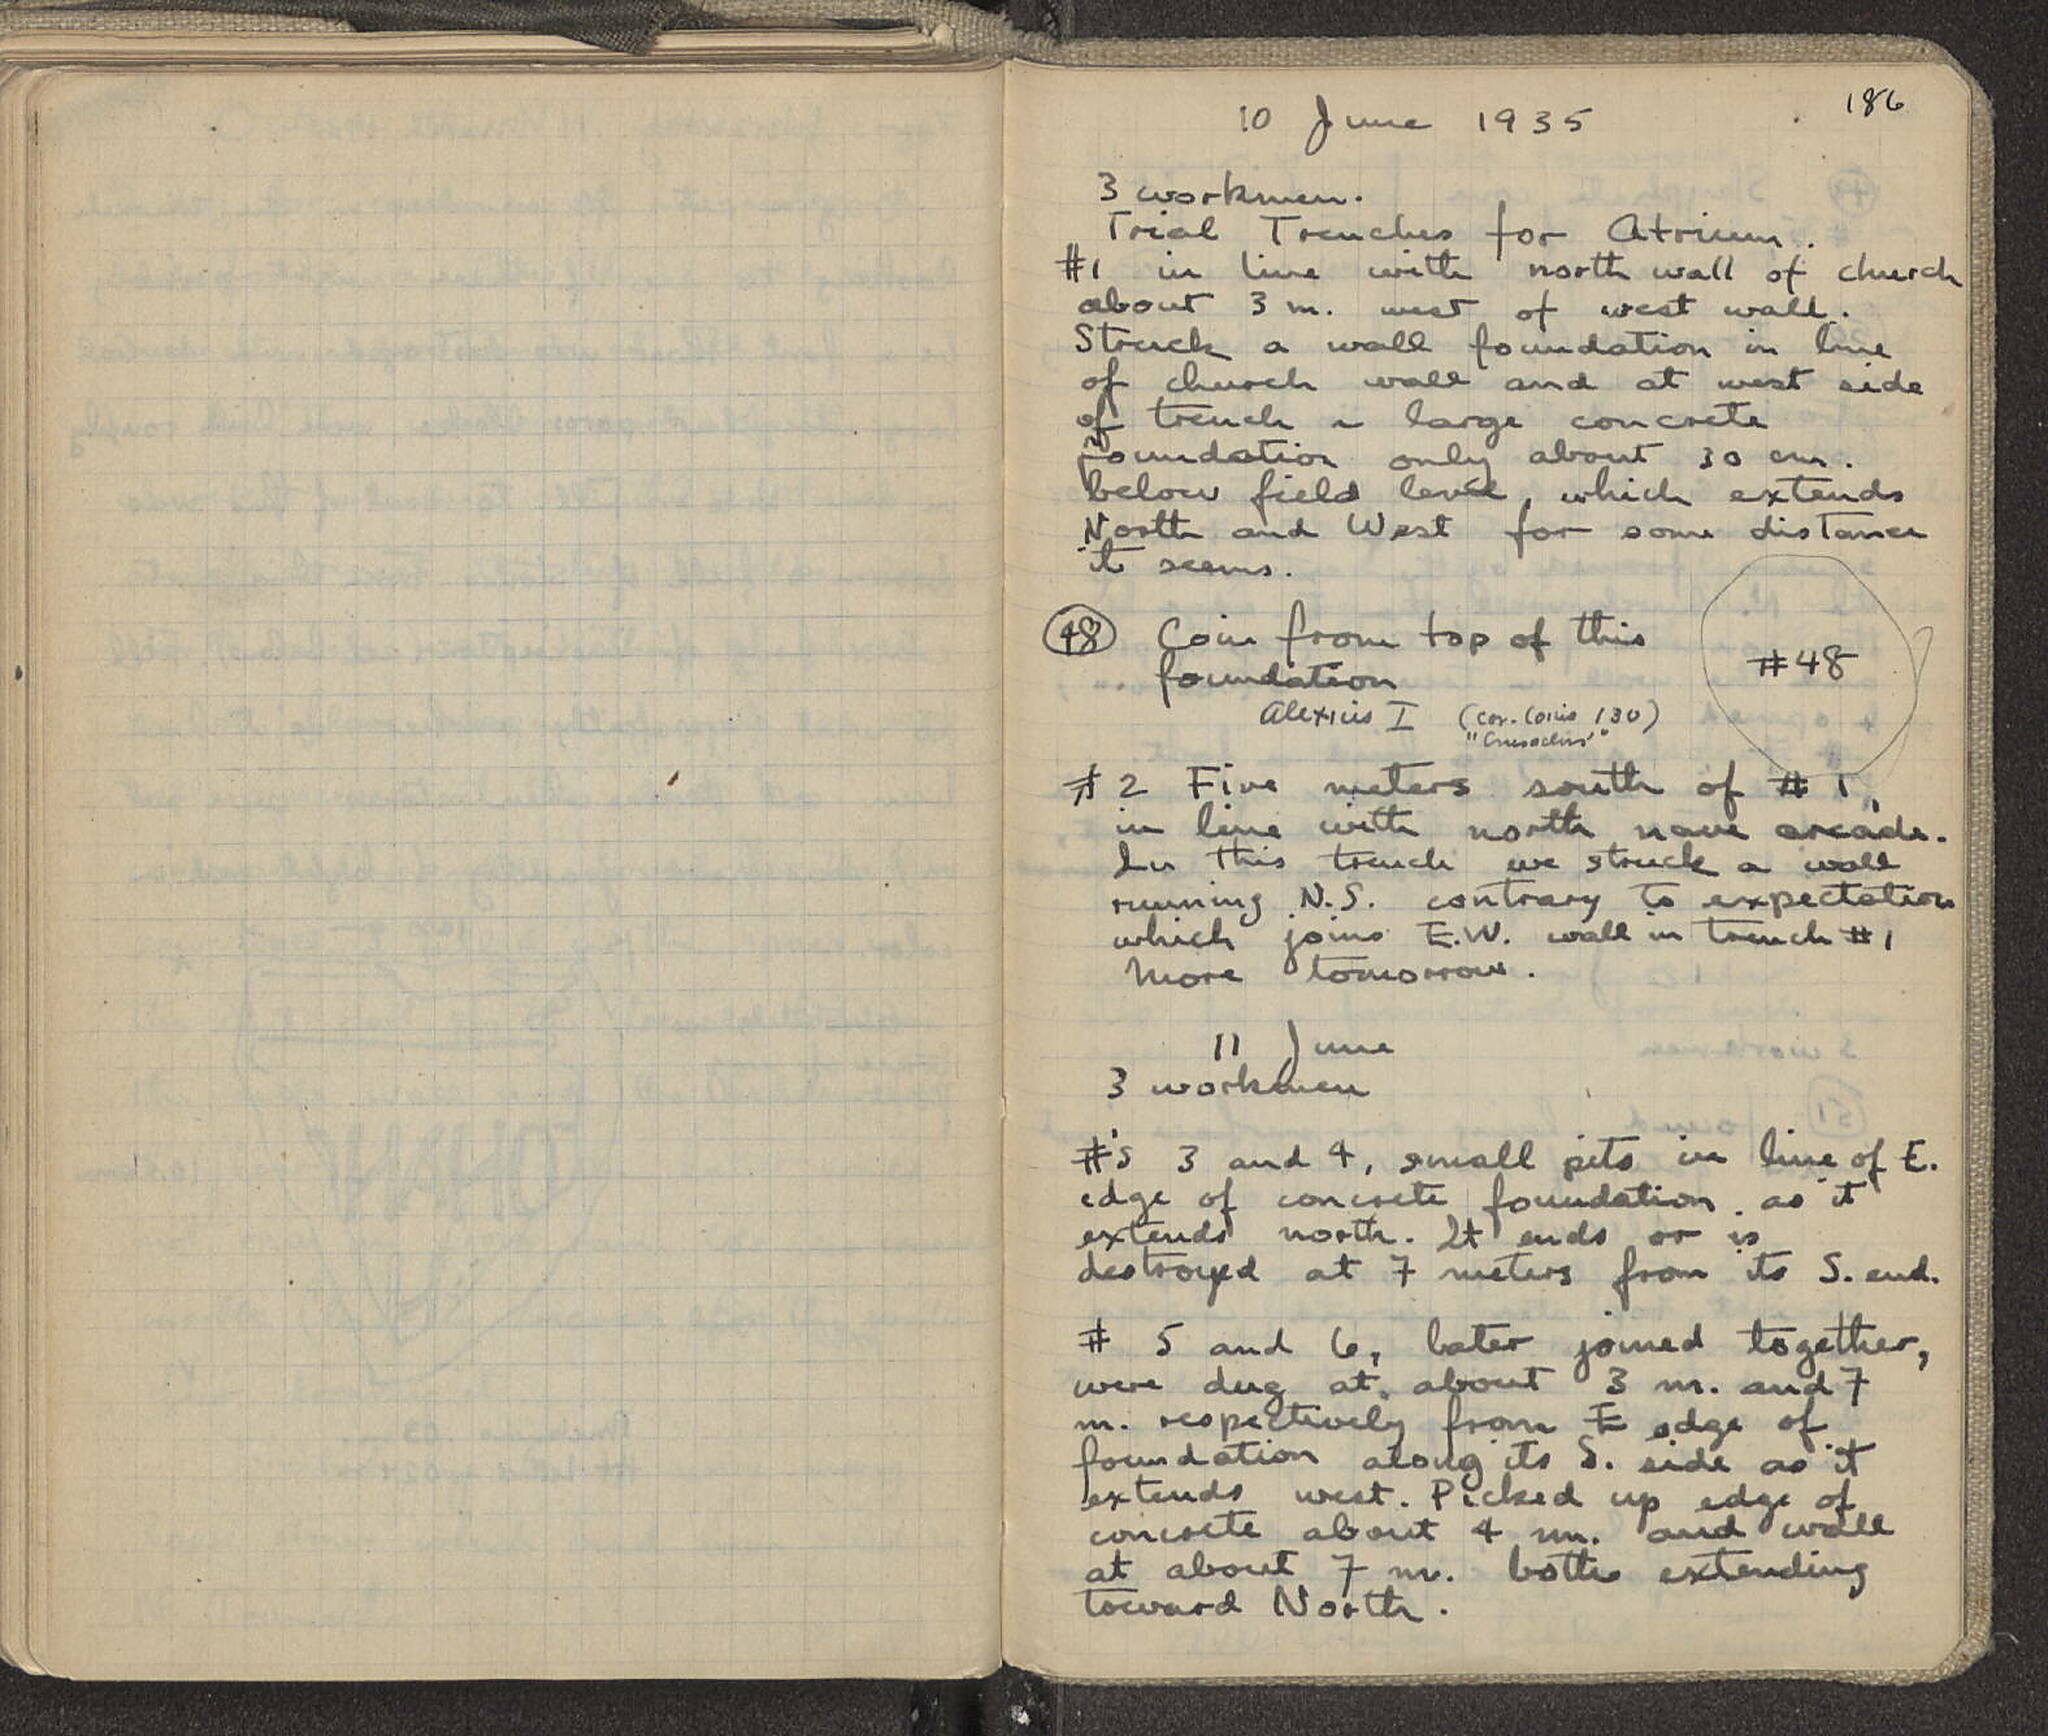 186
10 June 1935
3 workmen.
Trial Trenches for Atrium.
#1 in line with north wall of church
about 3 m. west of west wall.
Struck a wall foundation in line
of church wall and at west side
of trench a large concrete
foundation only about 30 cm.
below field level, which extends
North and West for some distance
it seems.
48 Coin from top of this
foundation
#48
Alexius I (Cor. Coins 130)
"Crusaders'"
#2 Five meters south of #1,
in line with north nave arcade.
In this trench we struck a wall
running N.S. contrary to expectation
which joins E.W. wall in trench #1
More tomorrow.
11 June
3 workmen
#'s 3 and 4, small pits in line of E.
edge of concrete foundation as it
extends north. It ends or is
destroyed at 7 meters from its S. end.
# 5 and 6, later joined together,
were dug at about 3 m. and 7
m. respectively from E edge of
foundation along its S. side as it
extends west. Picked up edge of
concrete about 4 m. and wall
at about 7 m. both extending
toward North.